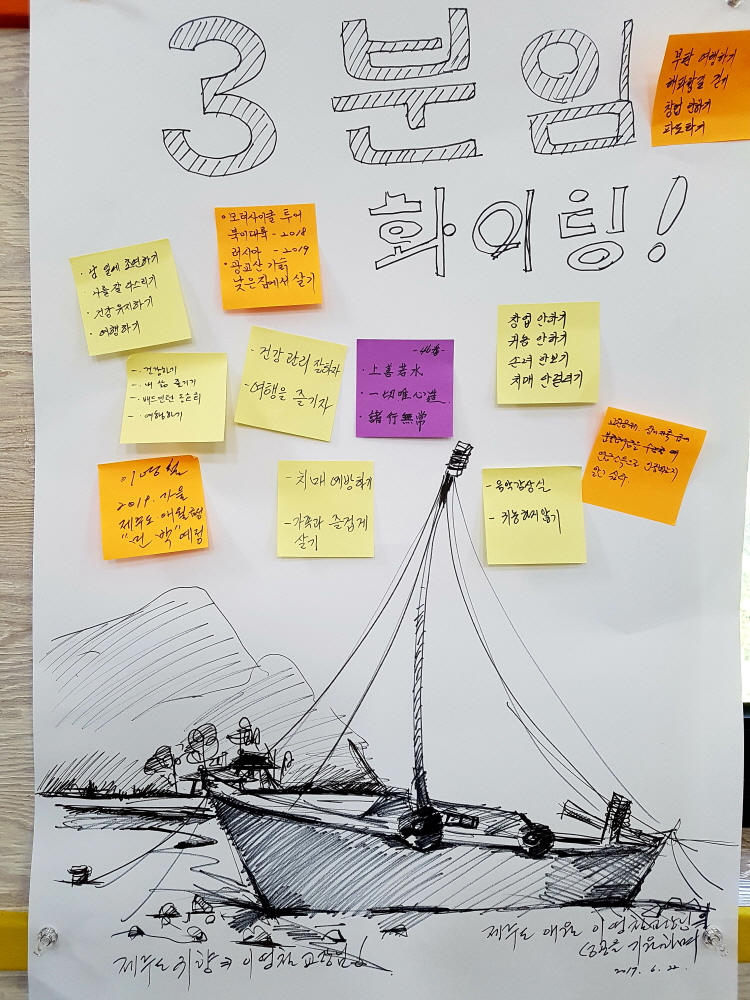 3 분임
화이팅!
부판 여행하기
해파랑길 걷기
창업 안하기
파도타기
• 모터사이클 투어
북미대륙 - 2018
러시아 - 2019
• 광교산 기슭
낮은집에서 살기
· 남 일에 조연하기
· 나를 잘 다스리기
· 건강 유지하기
· 여행하기
- 건강하기
- 내 삶 즐기기
- 배드민턴
- 여행하기
- 건강 관리 잘하자
- 여행을 즐기자
· 上善若水
· 一切唯心造
· 諸行無常
창업 안하기
귀농 안하기
손녀 안보기
치매 안걸리기
2019. 가을
제주도 애월
"민박" 예정
- 치매 예방하기
- 가족과 즐겁게
살기
- 음악감상실
- 귀농하지않기
제주도 귀향 이영철 교장님
제주도 애월 이영철 교장님의
성공을 기원하며
2017. 6. 22.